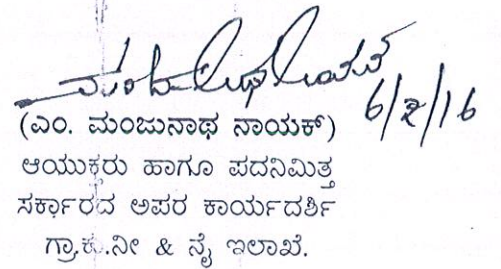 6/2/16
(ಎಂ. ಮಂಜುನಾಥ ನಾಯಕ್)
ಆಯುಕ್ತರು ಹಾಗೂ ಪದನಿಮಿತ್ತ
ಸರ್ಕಾರದ ಅಪರ ಕಾರ್ಯದರ್ಶಿ
ಗ್ರಾ.ಕು.ನೀ & ನೈ ಇಲಾಖೆ.